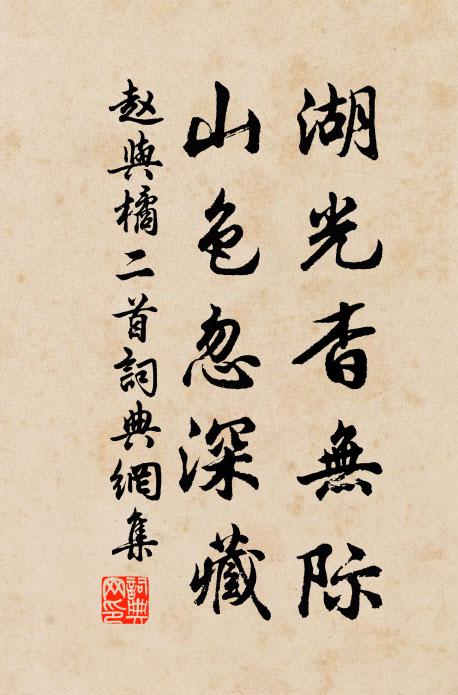 湖光杳無际
山色忽深藏
赵與橘二首詞典網集
詞典
网印